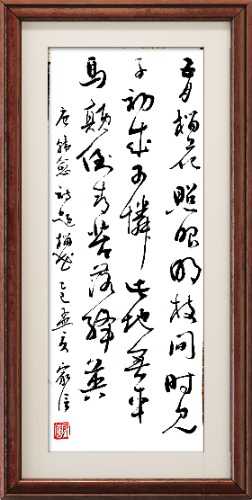 五月榴花照眼明枝间时见
子初成可憐此地无车
马颠倒青苔落绛英
唐韩愈诗题榴花乙巳孟夏家信